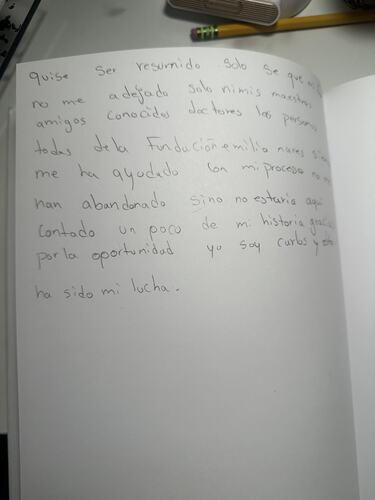 quise ser resumido solo se que
no me a dejado solo ni mis maestros
amigos conocidos doctores las personas
todas de la Fundación emilia nares
me ha ayudado con mi proceso no me
han abandonado sino no estaria aqui
Contado un poco de mi historia gracias
por la oportunidad yo soy carlos y esta
ha sido mi lucha.